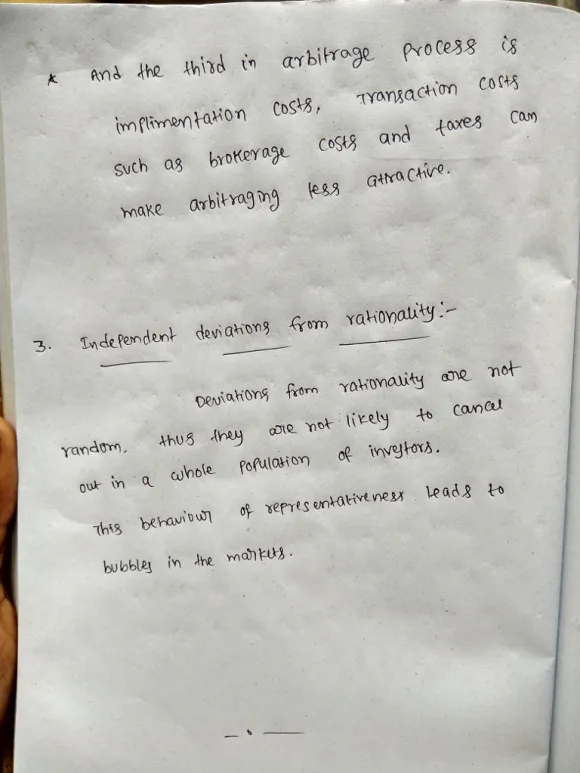 * And the third in arbitrage process is
implimentation costs, Transaction costs
such as brokerage costs and taxes can
make arbitraging less attractive.
3. Independent deviations from rationality:-
Deviations from rationality are not
random. thus they are not likely to cancel
out in a whole population of investors.
This behaviour of representativeness leads to
bubbles in the markets.